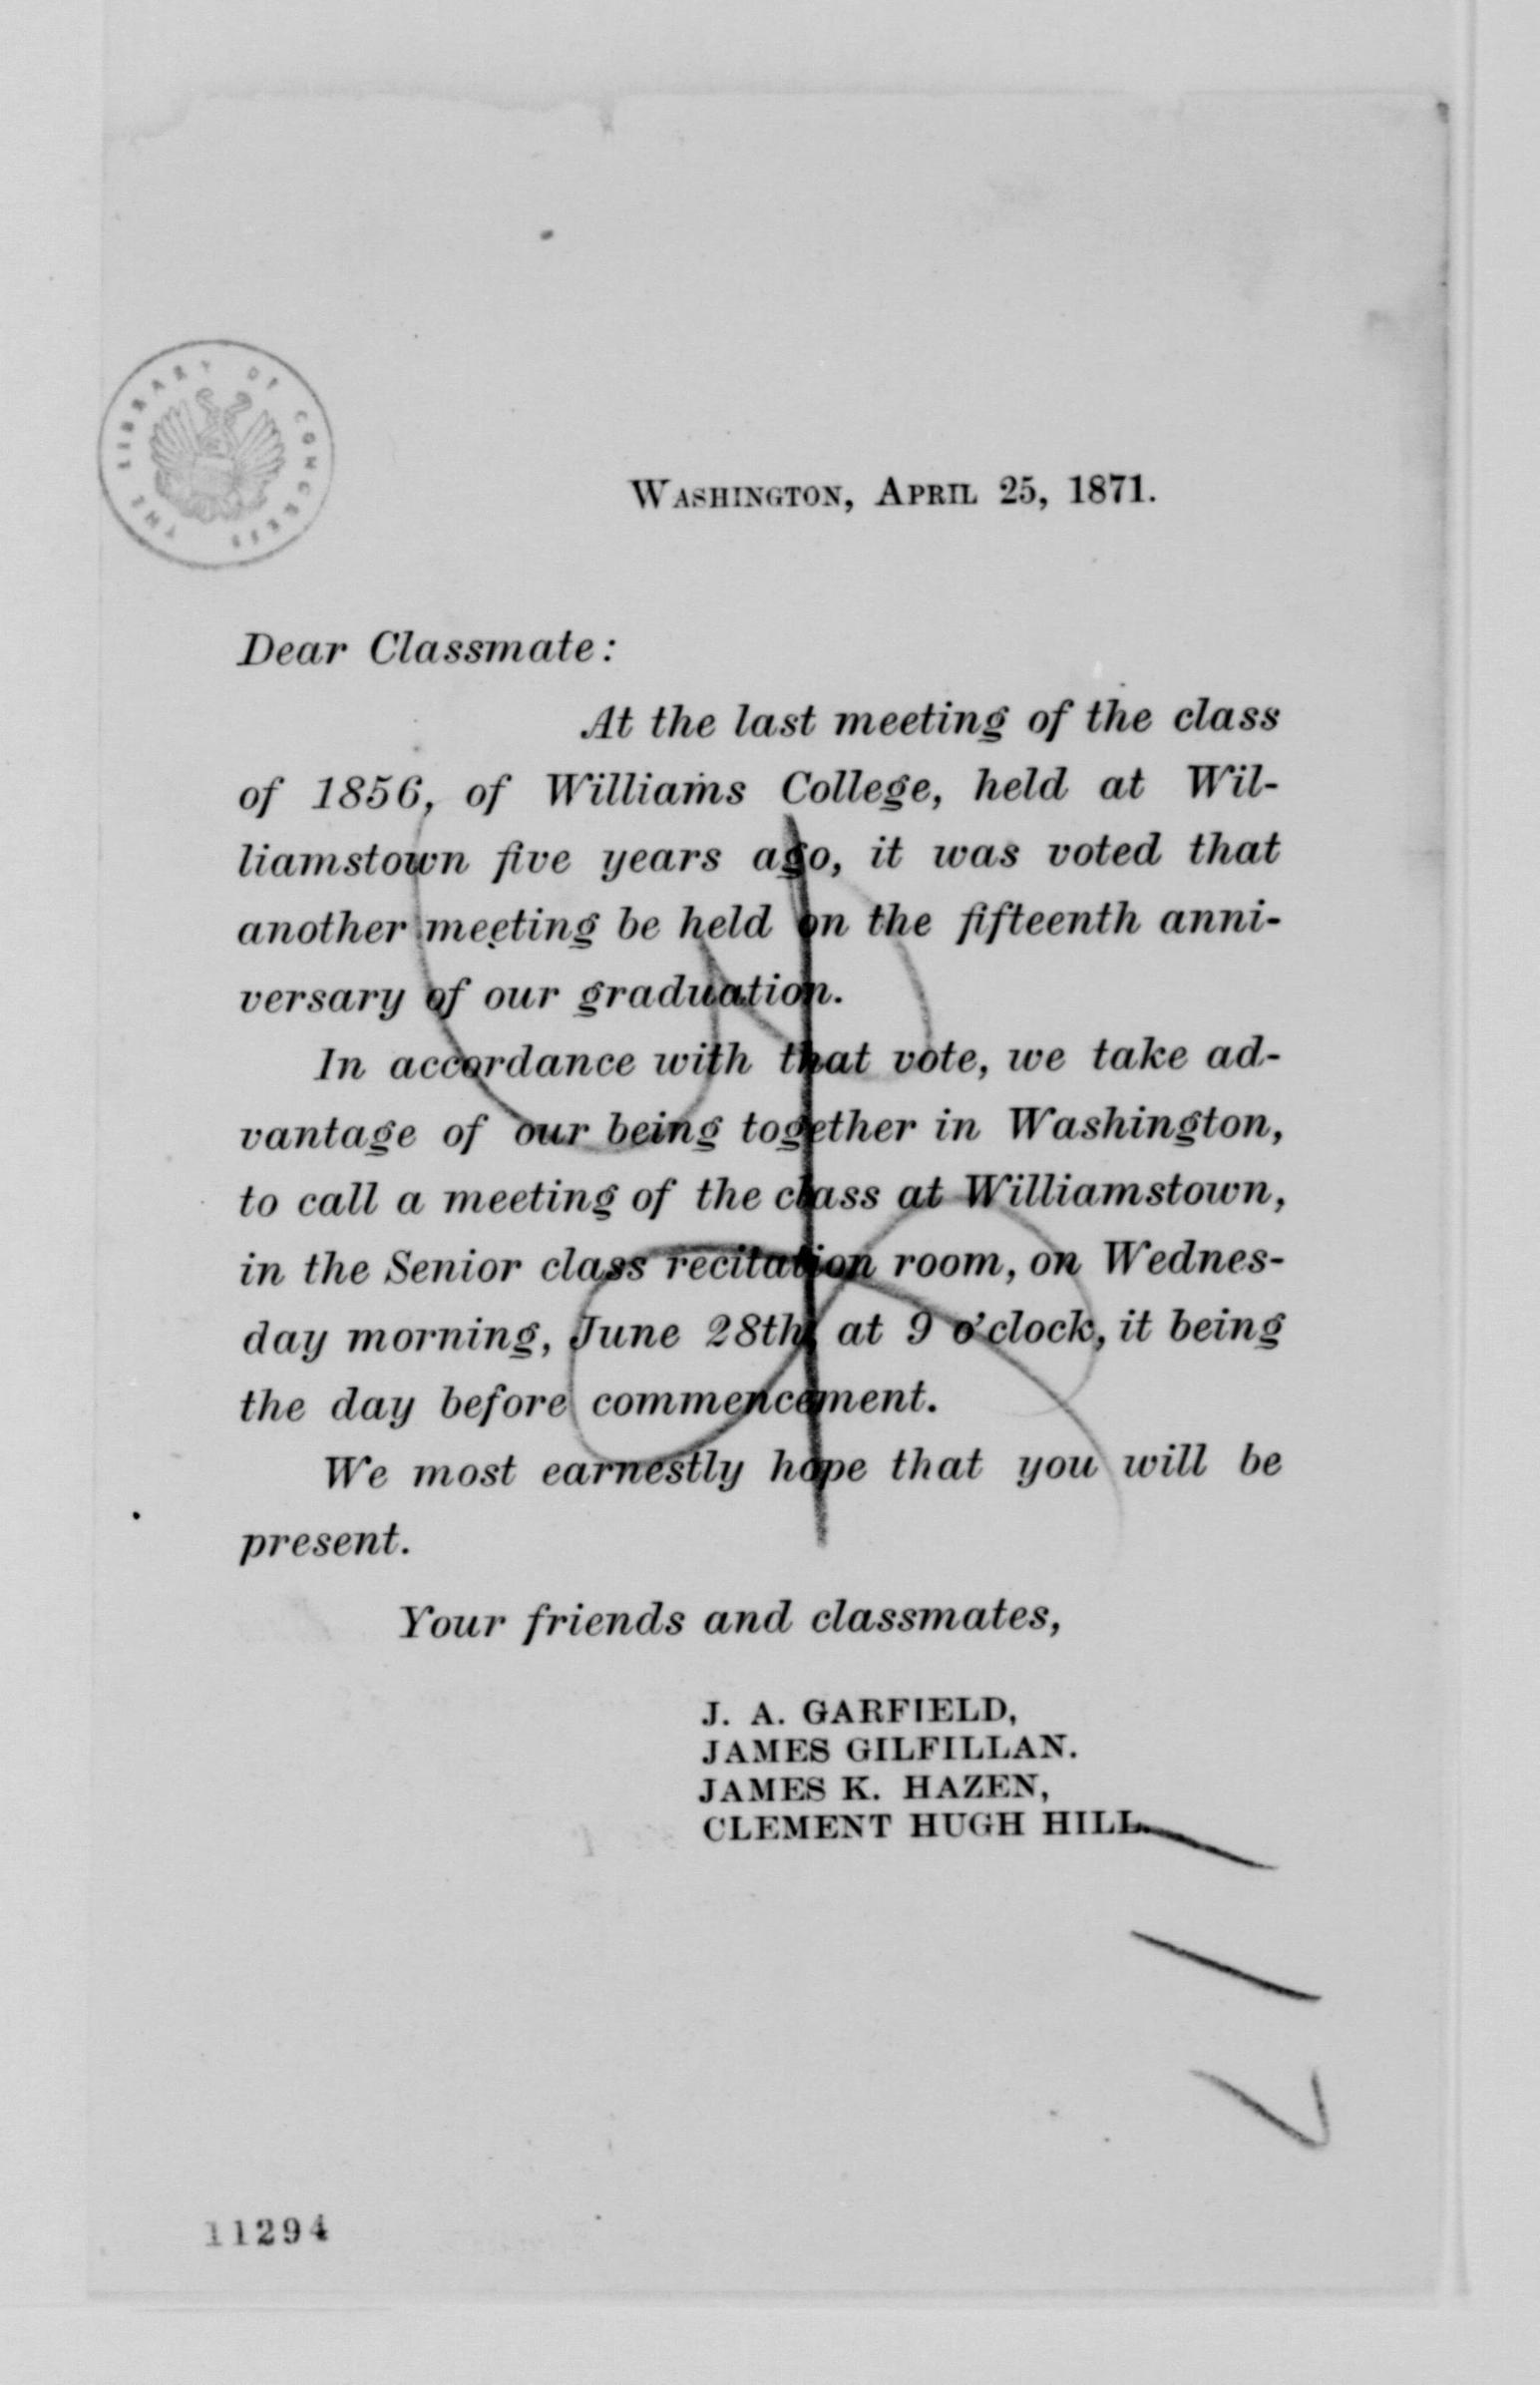 THE LIBRARY OF CONGRESS
WASHINGTON, APRIL 25, 1871.
Dear Classmate:
At the last meeting of the class
of 1856, of Williams College, held at Wil-
liamstown five years ago, it was voted that
another meeting be held on the fifteenth anni-
versary of our graduation.
In accordance with that vote, we take ad-
vantage of our being together in Washington,
to call a meeting of the class at Williamstown,
in the Senior class recitation room, on Wednes-
day morning, June 28th, at 9 o'clock, it being
the day before commencement.
We most earnestly hope that you will be
present.
Your friends and classmates,
J. A. GARFIELD,
JAMES GILFILLAN.
JAMES K. HAZEN,
CLEMENT HUGH HILL.
11294